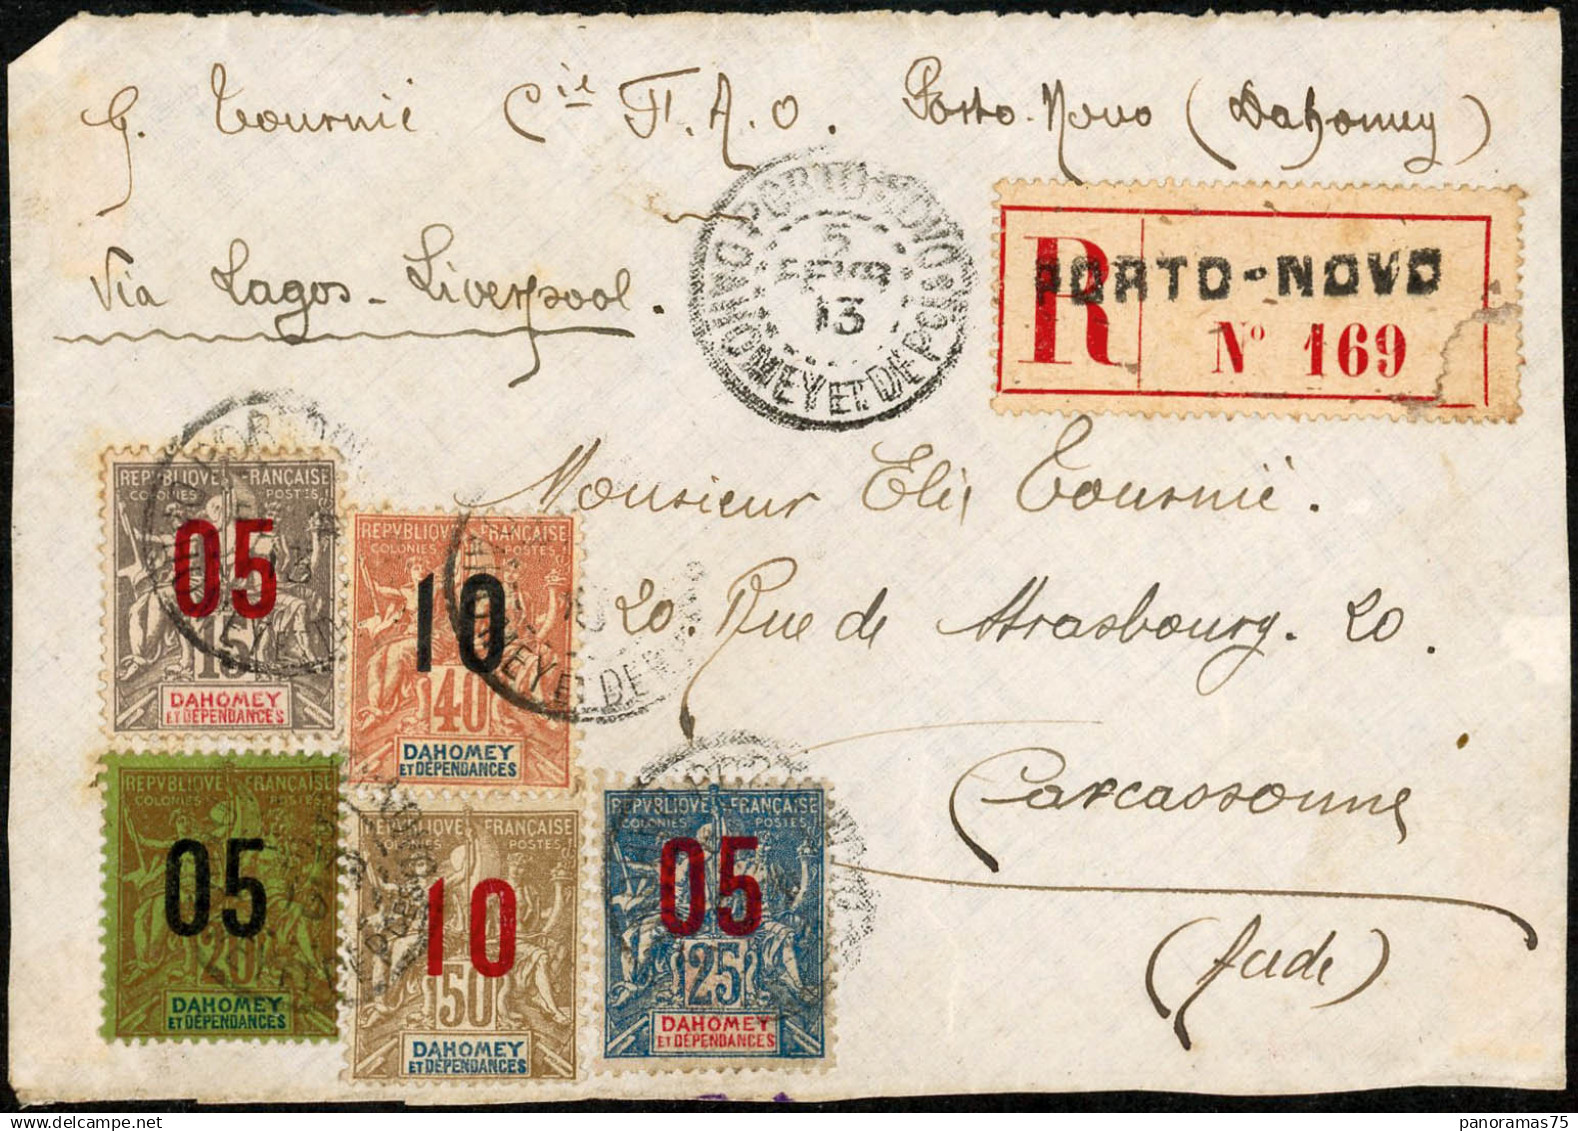 G. Tournié Cie F.A.O. Porto-Novo (Dahomey)
Via Lagos - Liverpool.
PORTO-NOVO
5
FEVR
13
DAHOMEY ET DEP
R
PORTO-NOVO
N° 169
Monsieur Elie Tournié.
20. Rue de Strasbourg. 20.
Carcassonne
(Aude)
REPVBLIQVE FRANÇAISE
COLONIES POSTES
05
15
DAHOMEY
ET DÉPENDANCES
REPVBLIQVE FRANÇAISE
COLONIES POSTES
10
40
DAHOMEY
ET DÉPENDANCES
MEY ET DE
REPVBLIQVE FRANÇAISE
COLONIES POSTES
05
20
DAHOMEY
ET DÉPENDANCES
REPVBLIQVE FRANÇAISE
COLONIES POSTES
10
50
DAHOMEY
ET DÉPENDANCES
REPVBLIQVE FRANÇAISE
COLONIES POSTES
05
25
DAHOMEY
ET DÉPENDANCES
panoramas75